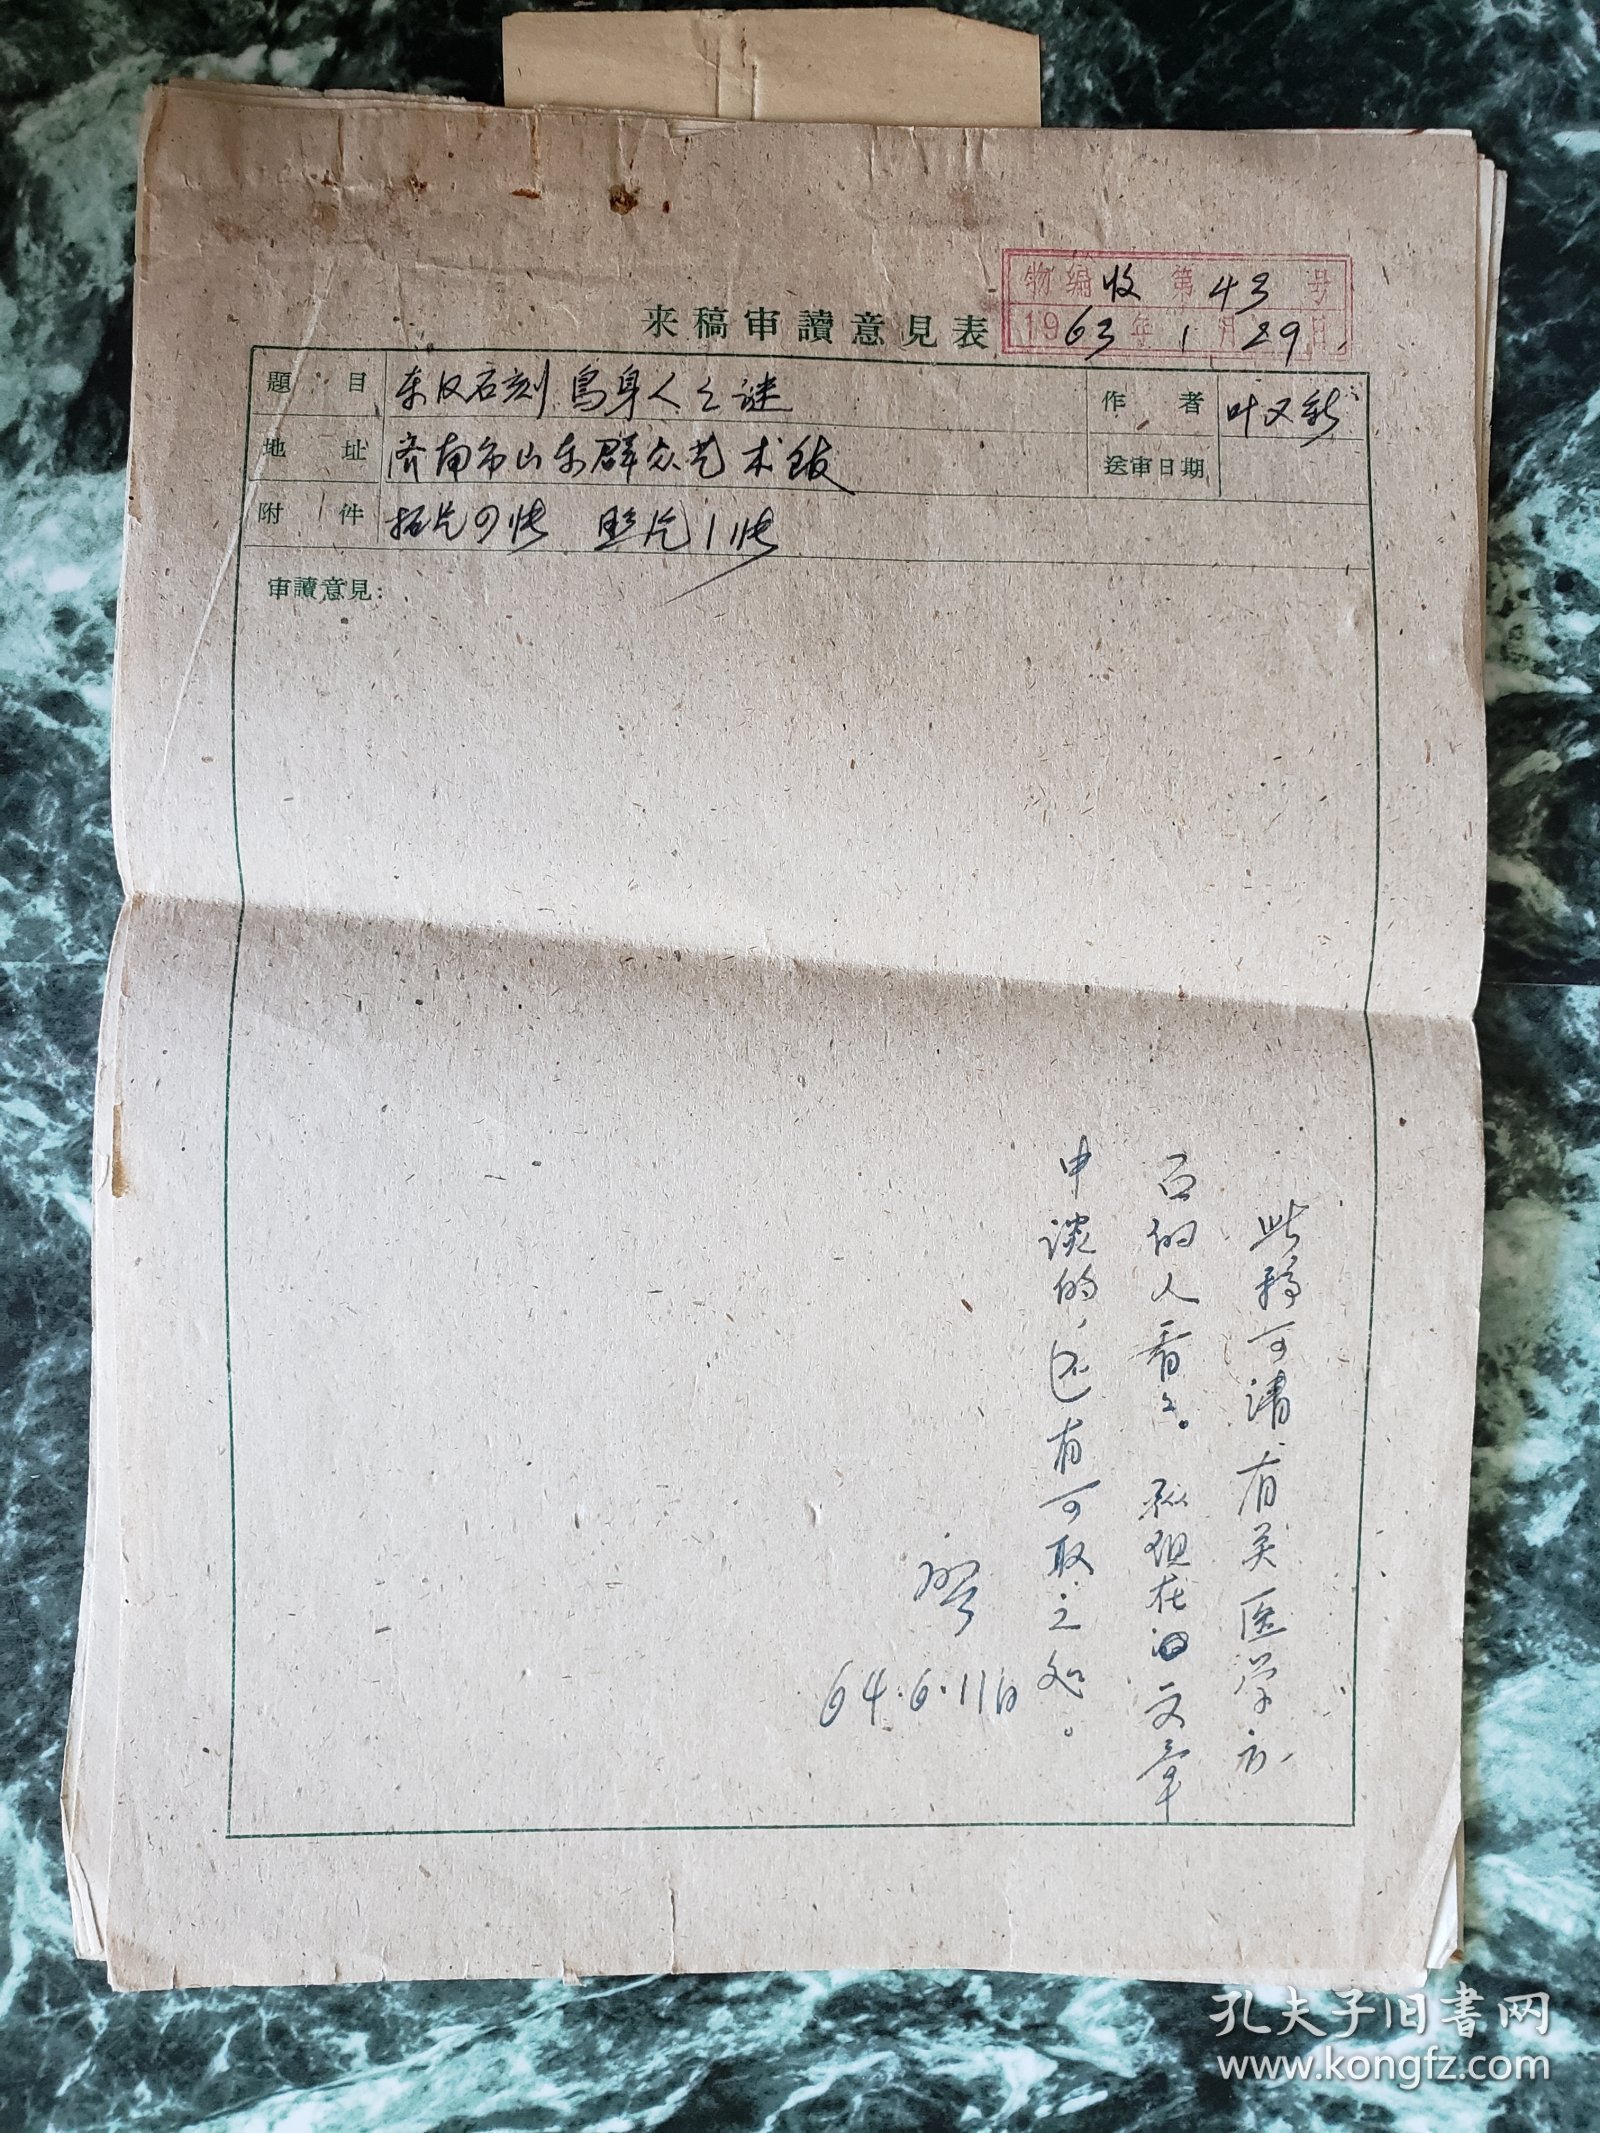 物编收第43号
1963年1月29日
来稿审讀意見表
題目 东汉石刻鸟身人之谜
作者 叶又新
地址 济南市山东群众艺术馆
送审日期
附件 拓片4张 照片1张
审讀意見:
此稿可请有关医学方
面的人看看。就现在的文章
中谈的,还有可取之处。
64.6.11日
孔夫子旧書网
www.kongfz.com